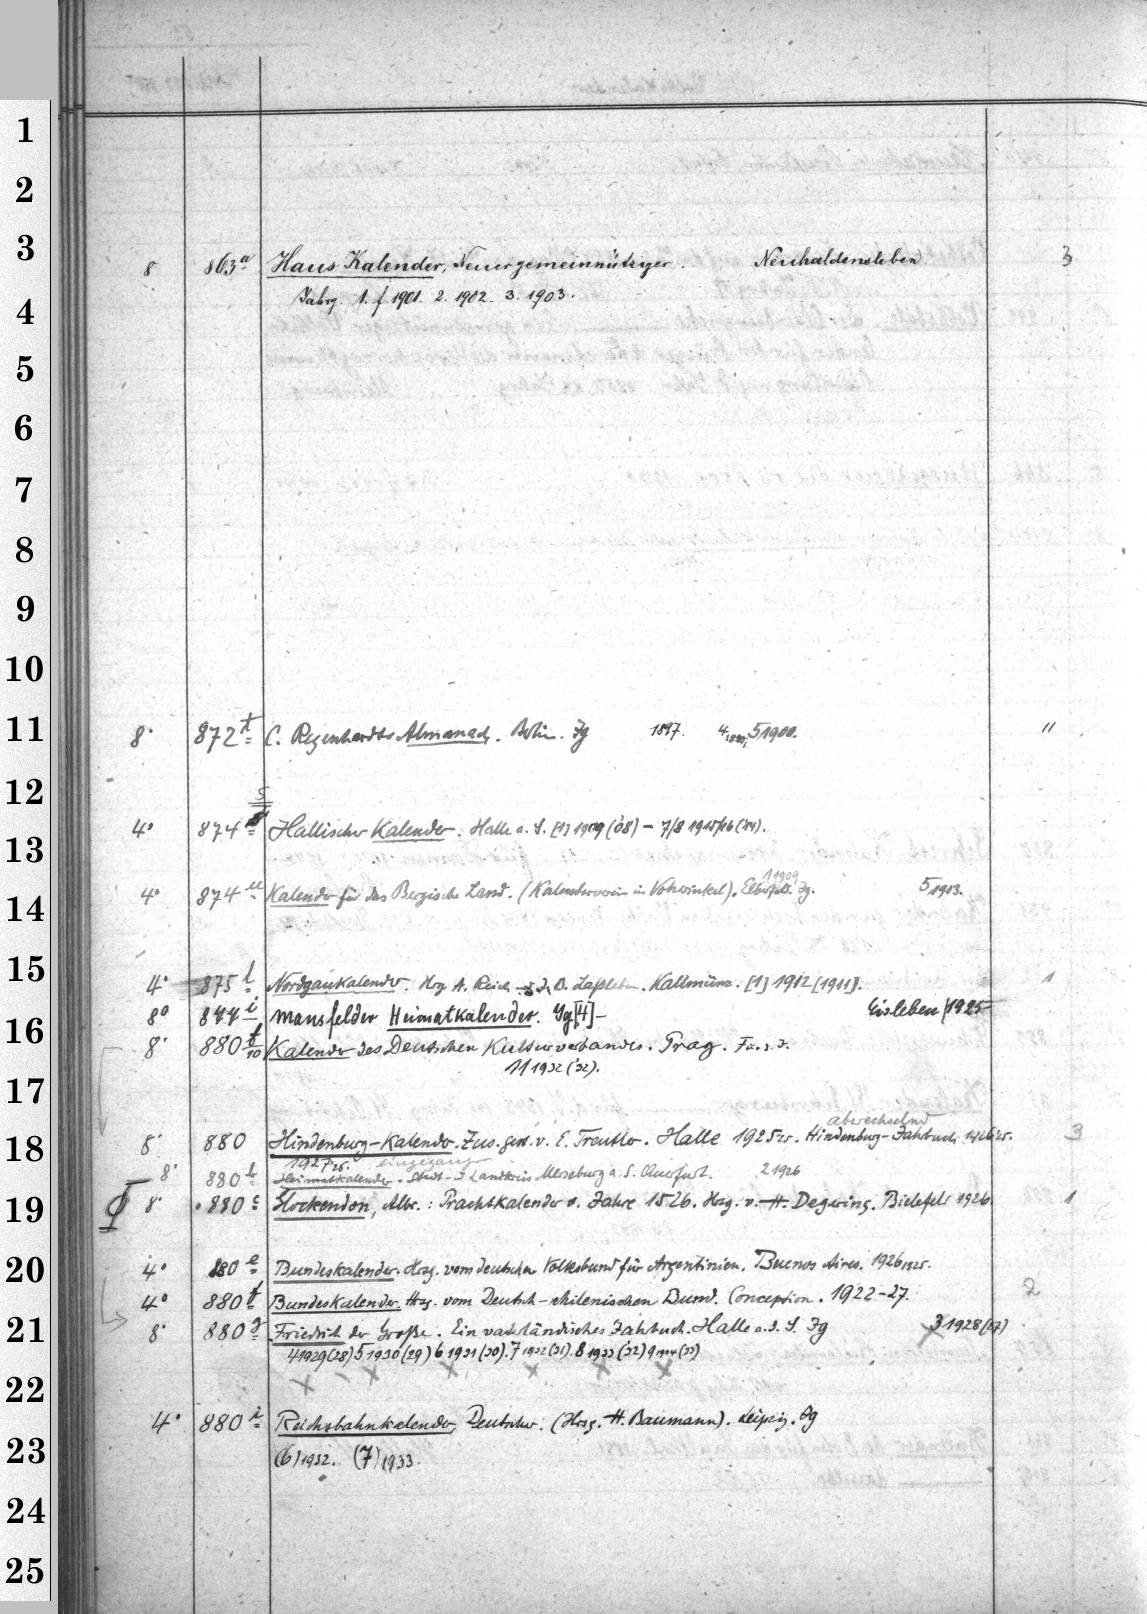 1
2
3
8 863a Haus Kalender, Neuer gemeinnütziger. Neuhaldensleben 3
Jahrg. 1. f 1901. 2. 1902. 3. 1903.
4
5
6
7
8
9
10
11
8° 872t C. Regenhardts Almanach. Berlin. Jg 1897. 4 5 1900. "
12
5
4° 874 Hallischer Kalender. Halle a. S. [1] 1909 (08) – 7/8 1915/16 (14).
13
1 1909
4° 874u Kalender für das Bergische Land. (Kalenderverein in Vohwinkel). Elberfeld. Jg. 5 1913.
14
15
4° 875l Nordgaukalender. Hrg. A. Reich J. B. Laßleben. Kallmünz. [1] 1912 [1911]. 1
8° 877i Mansfelder Heimatkalender. Jg [4] – Eisleben 1925
16
8° 880f/10 Kalender des Deutschen Kulturverbandes. Prag.
11 1932 ('32).
17
abwechselnd
18
8° 880 Hindenburg-Kalender. Zus. gest. v. E. Treutler. Halle 1925 25. Hindenburg-Jahrbuch 1926 25. 3
1927 26. eingegangen
8° 880b Heimatkalender. Stadt- Landkreis Merseburg a. S. Querfurt. 2 1926
19
8° 880c Glockendon, Albr.: Prachtkalender v. Jahre 1526. Hrsg. v. H. Degering. Bielefeld 1926 1
20
4° 880e Bundeskalender. Hrsg. vom deutschen Volksbund für Argentinien. Buenos Aires. 1926 1925.
4° 880f Bundeskalender. Hrsg. vom Deutsch-chilenischen Bund. Conception. 1922–27. 2
21
8° 880g Friedrich der Große. Ein vaterländisches Jahrbuch. Halle a. d. S. Jg 3 1928 (27)
4 1929 (28) 5 1930 (29) 6 1931 (30). 7 1932 (31). 8 1933 (32) 9 1934 (33)
22
4° 880i Reichsbahnkalender, Deutscher. (Hrsg. H. Baumann). Leipzig. Jg
23
(6) 1932. (7) 1933.
24
25